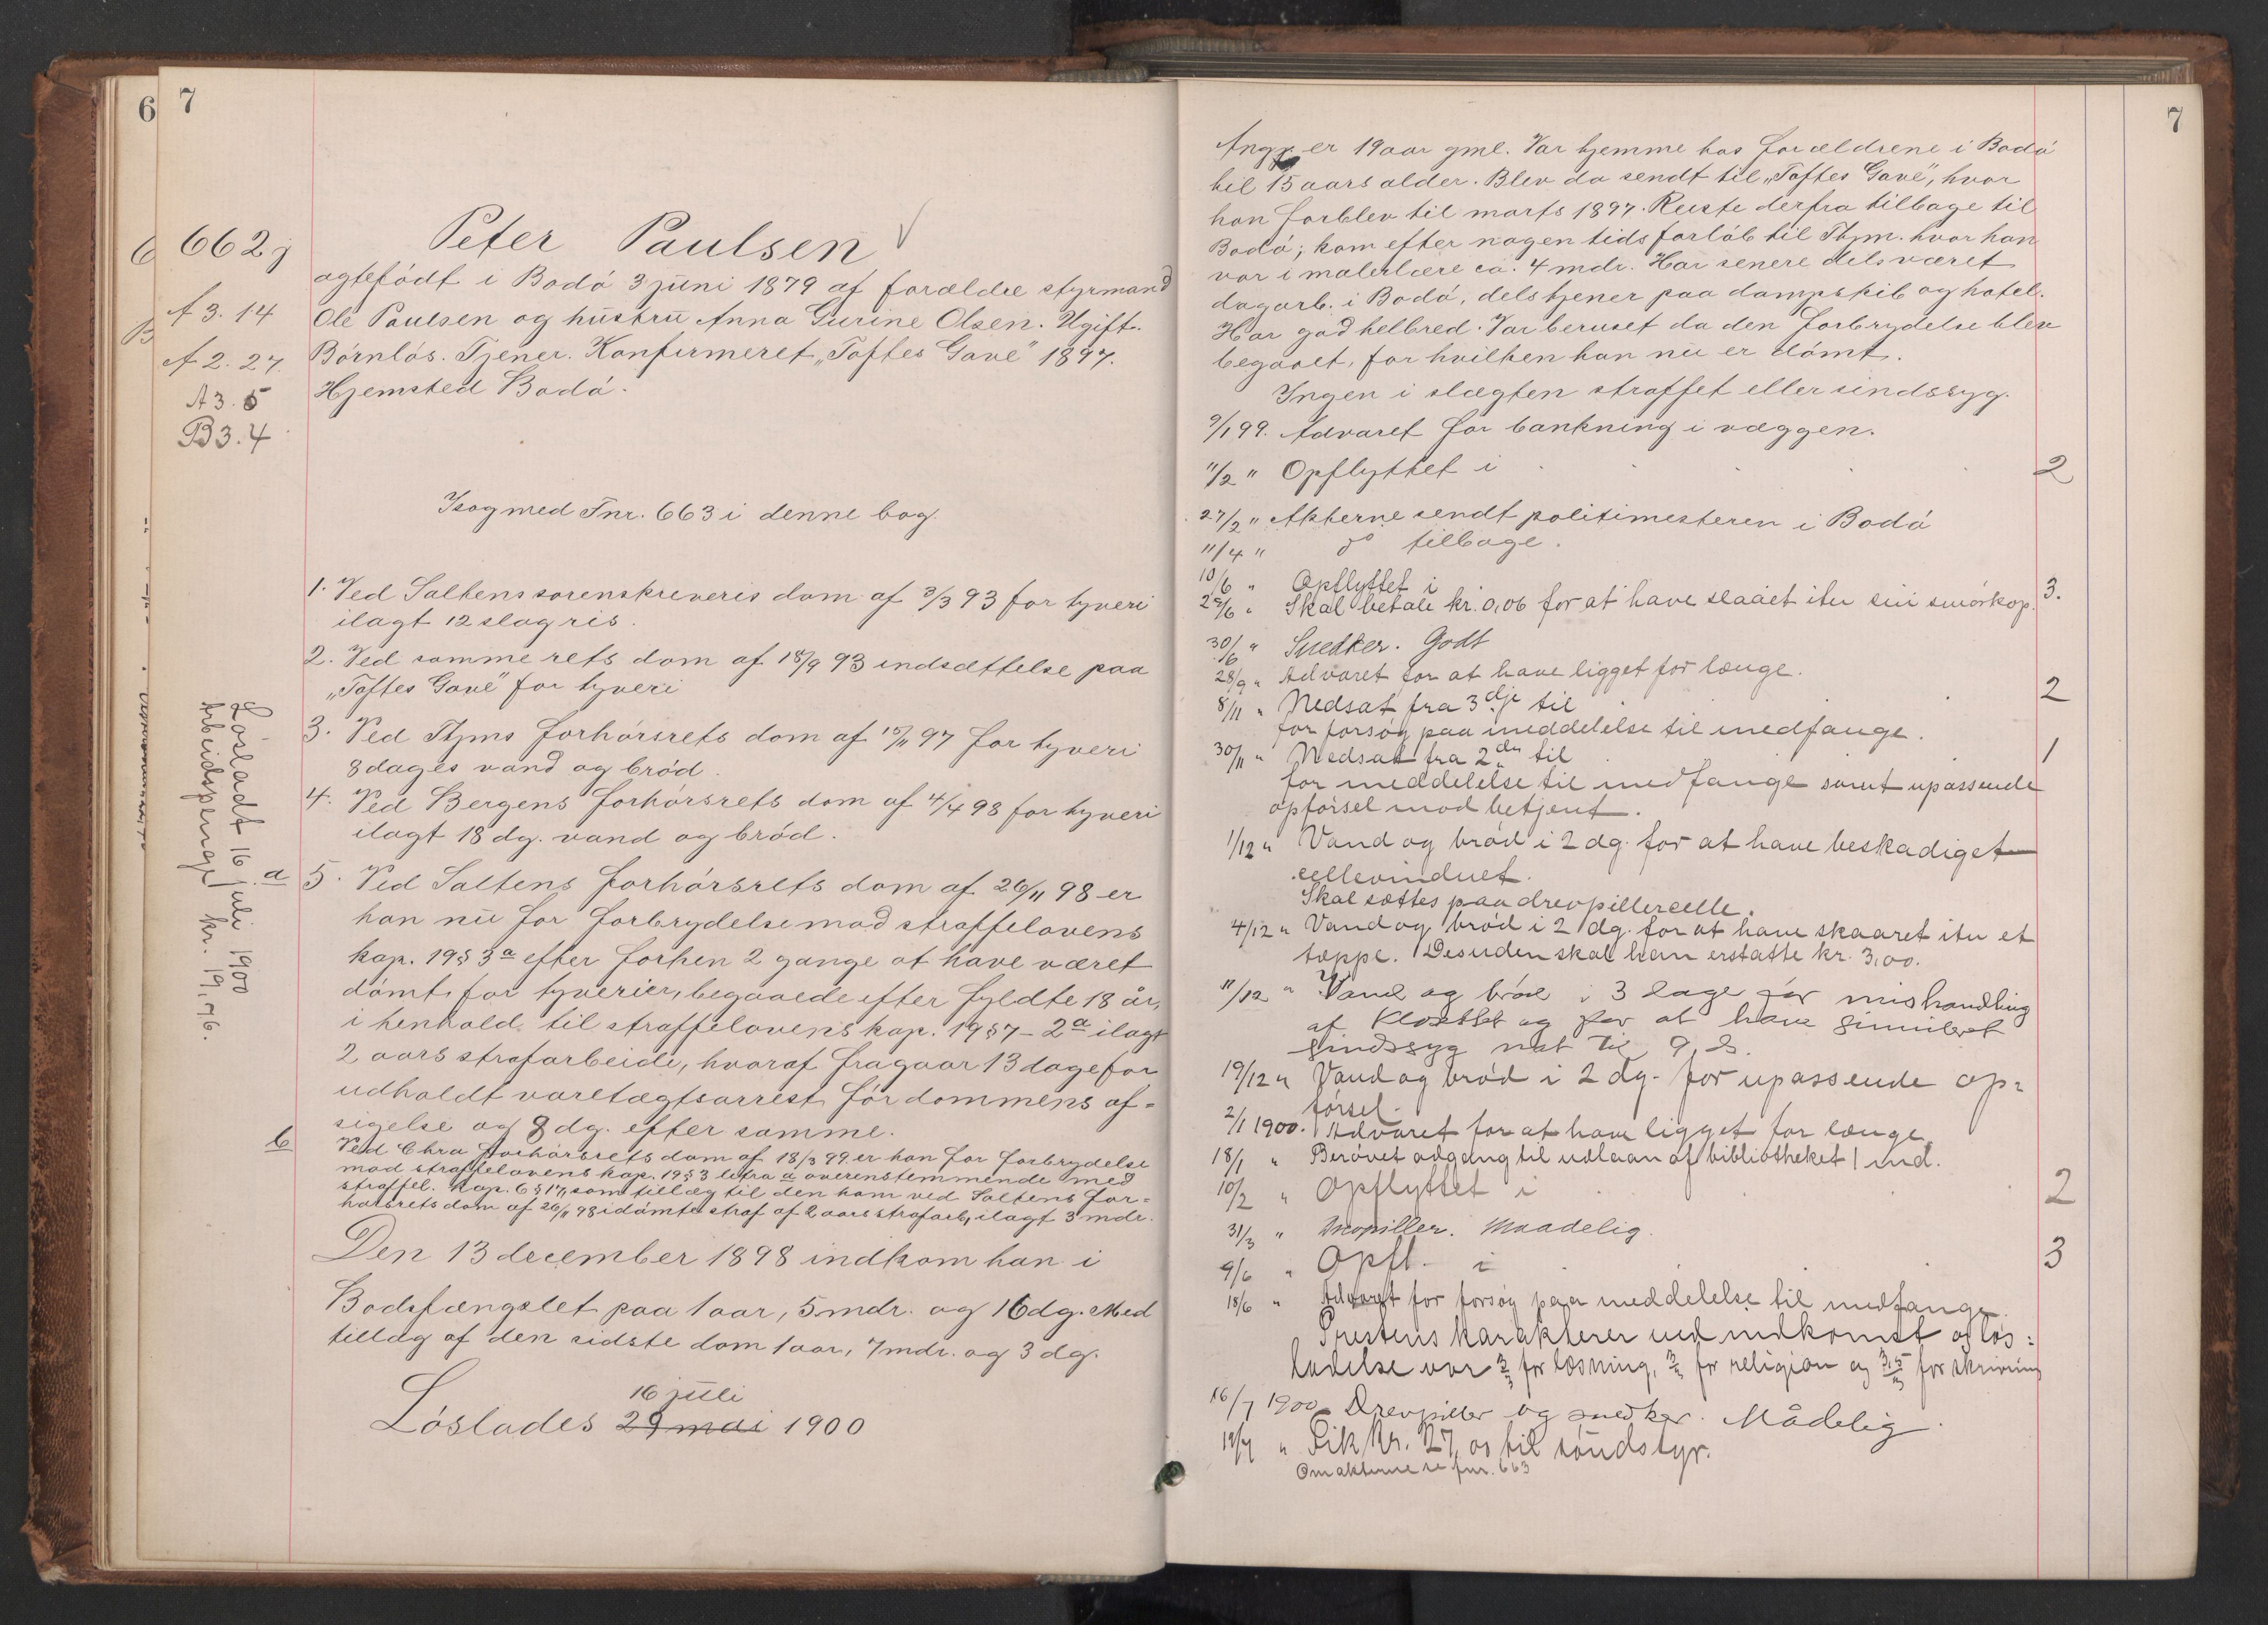 6
7
662j
A 3. 14
A 2. 27.
A 3. 5
B 3. 4
Peter Paulsen
ægtefödt i Bodö 3 juni 1879 af forældre styrmand
Ole Paulsen og hustru Anna Gurine Olsen. Ugift.
Börnlös. Tjener. Konfirmeret „Toftes Gave" 1897.
Hjemsted Bodö.
Isog med Fnr. 663 i denne bog.
1. Ved Saltens sorenskriveris dom af 3/3 93 for tyveri
ilagt 12 slag ris.
2. Ved samme rets dom af 18/9 93 indsættelse paa
„Toftes Gave" for tyveri
3. Ved Thjms forhörsrets dom af 15/11 97 for tyveri
8 dages vand og bröd.
4. Ved Bergens forhörsrets dom af 4/4 98 for tyveri
ilagt 18 dg. vand og bröd.
a
5. Ved Saltens forhörsrets dom af 26/11 98 er
han nu for forbrydelse mod straffelovens
kap. 19 § 3 a efter forhen 2 gange at have været
dömt for tyverier, begaaede efter fyldte 18 år,
i henhold til straffelovens kap. 19 § 7 - 2 a ilagt
2 aars strafarbeide, hvoraf fragaar 13 dage for
udholdt varetægtsarrest för dommens af=
sigelse og 8 dg. efter samme.
b
Ved Chra forhörsrets dom af 18/3 99 er han for forbrydelse
mod straffelovens kap. 19 § 3 litra a overensstemmende med
straffel. kap. 6 § 17, som tillæg til den ham ved Saltens for=
hörsrets dom af 26/11 98 idömte straf af 2 aars strafarb., ilagt 3 mdr.
Den 13 december 1898 indkom han i
Bodsfængslet paa 1 aar, 5 mdr. og 16 dg. Med
tillæg af den sidste dom 1 aar, 7 mdr. og 3 dg.
16 juli
Löslades 29 mai 1900
Lösladt 16 juli 1900
Arbeidspenge kr. 19,96.
7
Angj. er 19 aar gml. Var hjemme hos forældrene i Bodö
til 15 aars alder. Blev da sendt til „Toftes Gave", hvor
han forblev til marts 1897. Reiste derfra tilbage til
Bodö; kom efter nogen tids forlöb til Thjm. hvor han
var i malerlære ca. 4 mdr. Har senere dels været
dagarb. i Bodö, dels tjener paa dampskib og hotel.
Har god helbred. Var beruset da den forbrydelse blev
begaaet, for hvilken han nu er dömt.
Ingen i slægten straffet eller sindssyg.
9/1 99. Advaret for bankning i væggen.
11/2 " Opflyttet i 2
27/2 " Akterne sendt politimesteren i Bodö
11/4 " do tilbage.
10/6 " Opflyttet i 3.
28/6 " Skal betale kr. 0,06 for at have slaaet itu sin smörkop.
30/6 " Snedker. Godt
28/9 " Advaret for at have ligget for længe.
8/11 " Nedsat fra 3dje til 2
for forsög paa meddelelse til medfange.
30/11 " Nedsat fra 2den til 1
for meddelelse til medfange samt upassende
opförsel mod betjent.
1/12 " Vand og bröd i 2 dg. for at have beskadiget
cellevinduet.
Skal sættes paa drevpillercelle.
4/12 " Vand og bröd i 2 dg. for at have skaaret itu et
tæppe. Desuden skal han erstatte kr. 3,00.
11/12 " Vand og bröd i 3 dage for mishandling
af klosettet og for at have simuleret
sindssyg nat til 9 ds.
19/12 " Vand og bröd i 2 dg. for upassende op=
försel.
2/1 1900. Advaret for at have ligget for længe
18/1 " Berövet adgang til udlaan af bibliotheket 1 md.
10/2 " Opflyttet i 2
31/3 " Maadelig.
9/6 " Opfl. i 3
18/6 " Advaret for forsög paa meddelelse til medfange.
Prestens karakterer ved indkomst og lös=
ladelse var for læsning, for religion og for skrivning
16/7 1900 Drevpiller og snedker. Mådelig.
" Fik kr. 27,00 til
Om akterne se fnr. 663